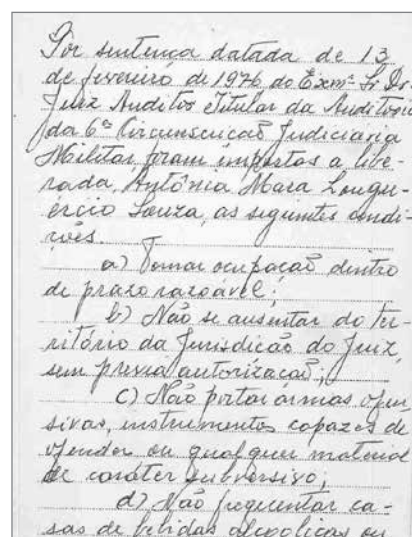 Por sentença datada de 13
de fevereiro de 1976 do Exmº Sr Dr.
Juiz Auditor Titular da Auditoria
da 6ª Circunscrição Judiciária
Militar, foram impostas a libe-
rada, Antônia Mara
Souza, as seguintes condi-
ções.
a) Tomar ocupação dentro
de prazo razoável;
b) Não se ausentar do ter-
ritório da Jurisdição do Juiz,
sem prévia autorização;
c) Não portar armas ofen-
sivas, instrumentos capazes de
ofender ou qualquer material
de caráter subversivo;
d) Não frequentar ca-
sas de bebidas alcoólicas ou